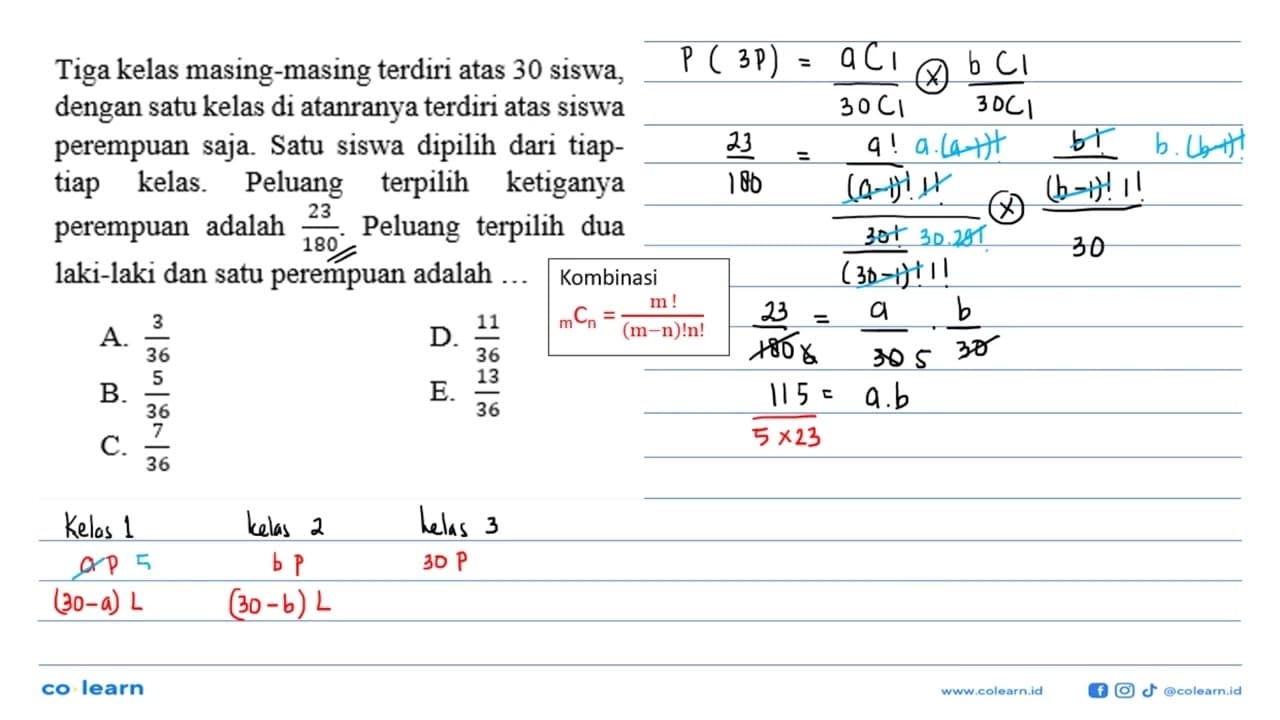 Tiga kelas masing-masing terdiri atas 30 siswa,
dengan satu kelas di atanranya terdiri atas siswa
perempuan saja. Satu siswa dipilih dari tiap-
tiap kelas. Peluang terpilih ketiganya
perempuan adalah 23/180. Peluang terpilih dua
laki-laki dan satu perempuan adalah ...
A. 3/36
B. 5/36
C. 7/36
D. 11/36
E. 13/36
Kombinasi
mCn = m!/(m-n)!n!
P (3P) = aC1/30C1 x bC1/30C1
23/180 = a! a.(a-1)!/(a-1)! 1!/30! 30.29!/(30-1)! 1! x b! b.(b-1)!/(b-1)! 1!/30
23/180 6 = a/30 5 . b/30
115 = a.b
5 x 23
Kelas 1 kelas 2 kelas 3
a P 5 b P 30 P
(30-a) L (30-b) L
co learn
www.colearn.id @colearn.id